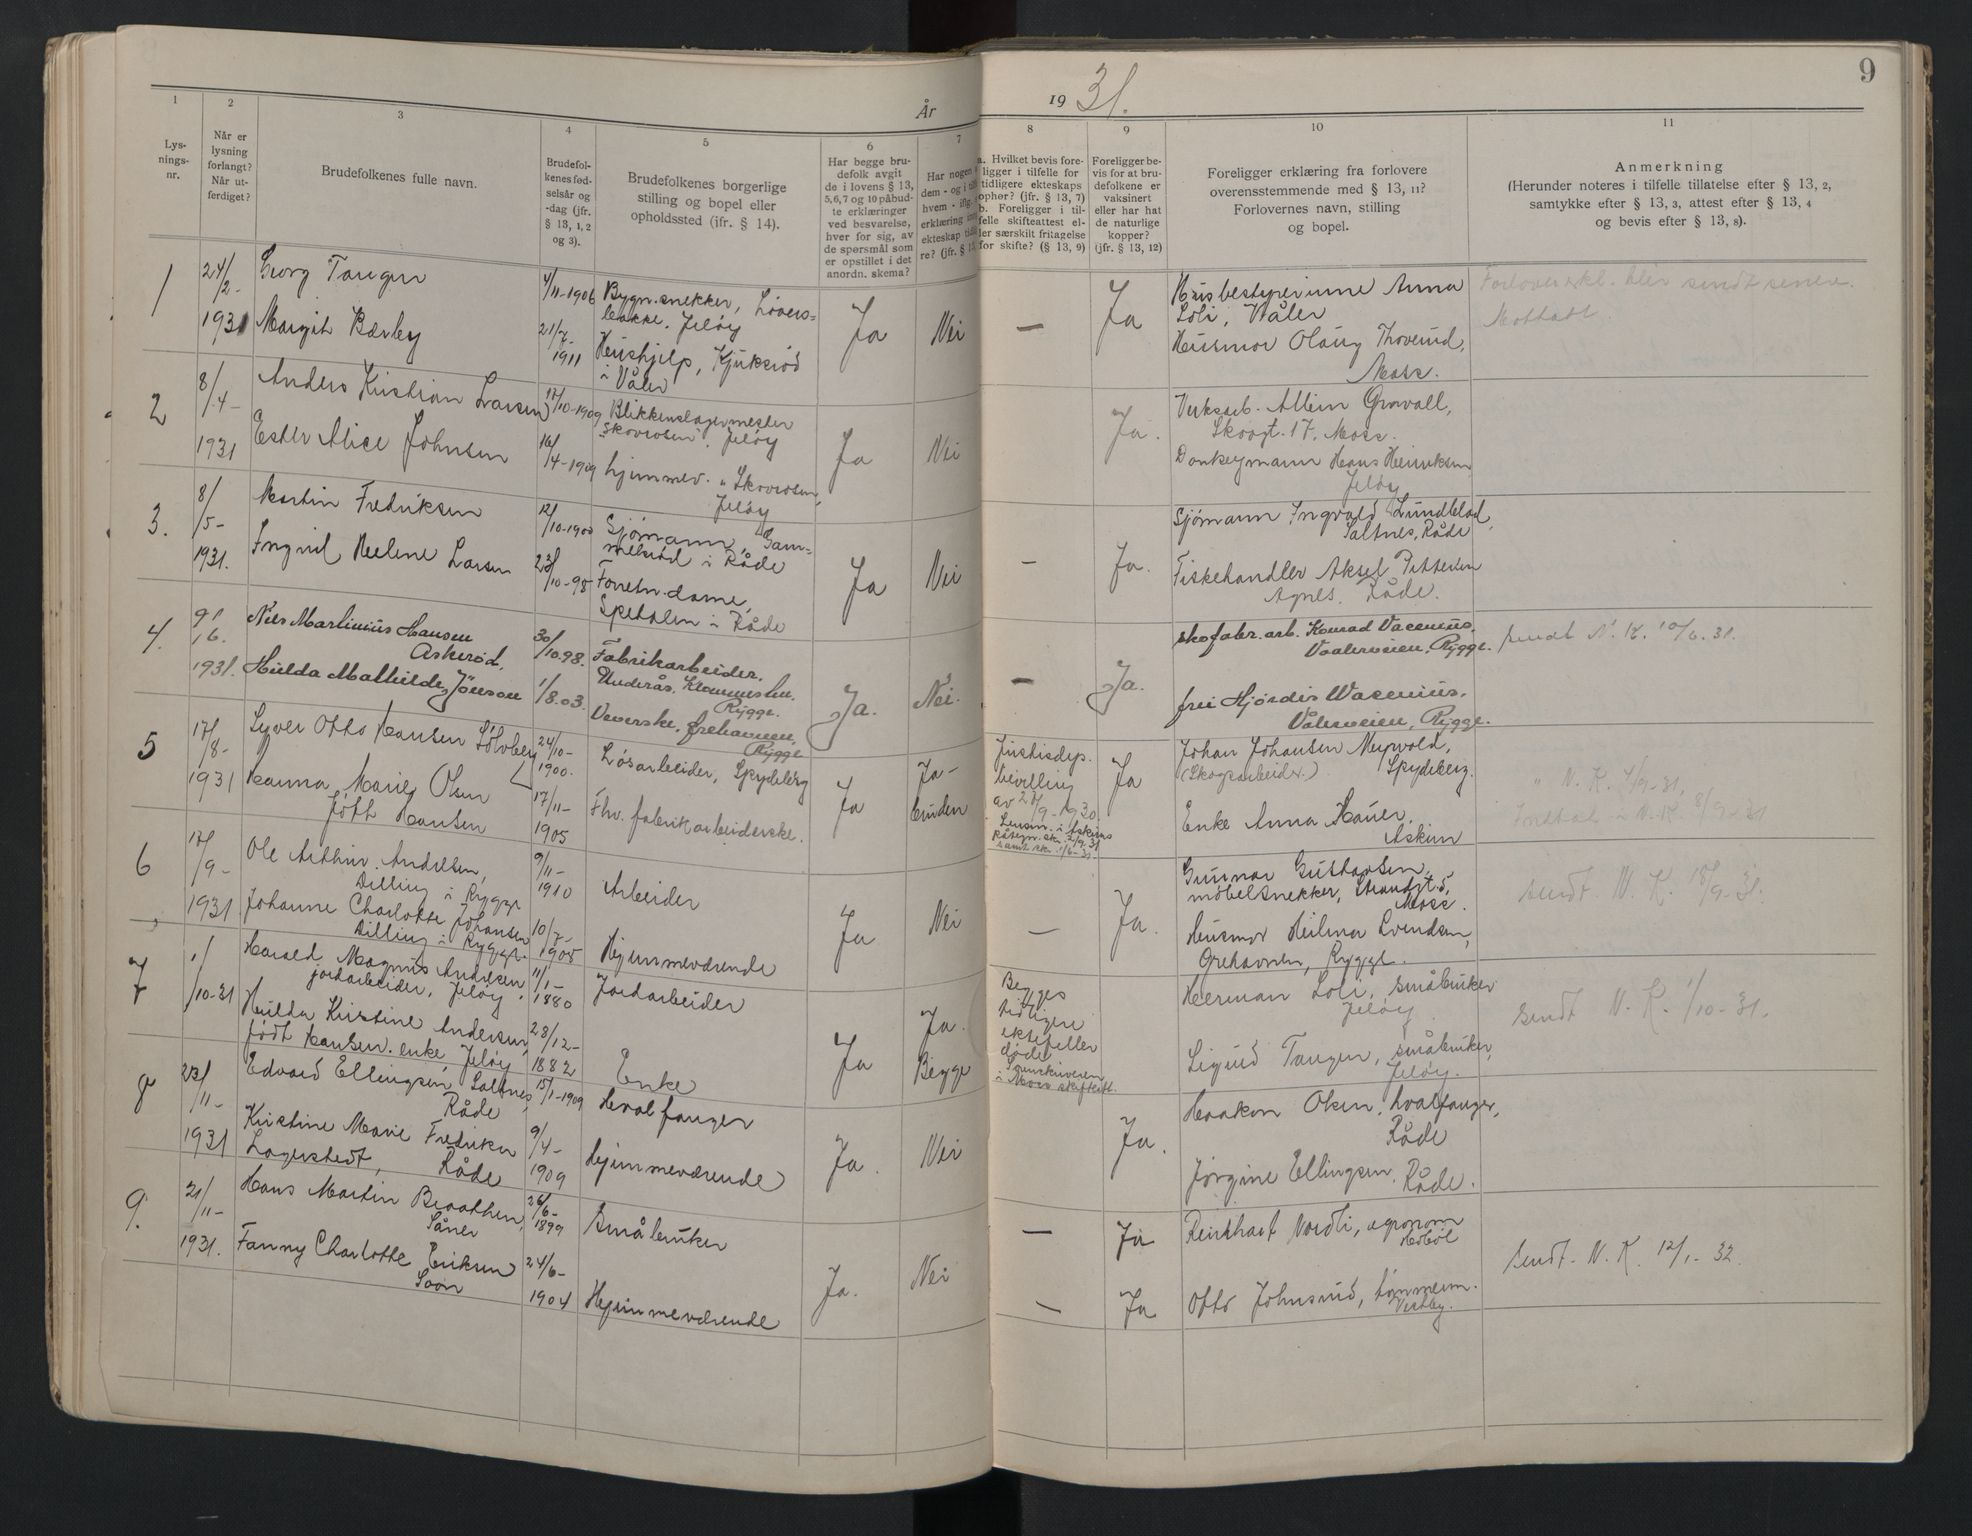 År
19 31.
9
1
2
3
4
5
6
7
8
9
10
11
Lys-
nings-
nr.
Når er
lysning
forlangt?
Når ut-
ferdiget?
Brudefolkenes fulle navn.
Brudefol-
kenes fød-
selsår og
-dag (jfr.
§ 13, 1, 2
og 3).
Brudefolkenes borgerlige
stilling og bopel eller
opholdssted (ifr. § 14).
Har begge bru-
defolk avgit
de i lovens § 13,
5,6,7 og 10 påbud-
te erklæringer
ved besvarelse,
hver for sig, av
de spørsmål som
er opstillet i det
anordn. skema?
Har nogen
dem - og i
hvem - iflg.
erklæring
ekteskap
re? (jfr. §
a. Hvilket bevis fore-
ligger i tilfelle for
tidligere ekteskaps
ophør? (jfr. § 13, 7)
b. Foreligger i til-
felle skifteattest el-
ler særskilt fritagelse
for skifte? (§ 13, 9)
Foreligger be-
vis for at bru-
defolkene er
vaksinert
eller har hat
de naturlige
kopper?
(jfr. § 13, 12)
Foreligger erklæring fra forlovere
overensstemmende med § 13, 11?
Forlovernes navn, stilling
og bopel.
Anmerkning
(Herunder noteres i tilfelle tillatelse efter § 13, 2,
samtykke efter § 13, 3, attest efter § 13, 4
og bevis efter § 13, 8).
1
24/2-
1931
Georg Tangen
Margit Bærby
4/11-1906
21/7-
1911
Bygn.snekker, Løvers=
bakke, Jeløy
Hushjelp, Kjuksrød
i Våler
Ja
Nei
—
Ja
Husbestyrerinne Anna
Soli, Våler
Husmor Olaug Thoverud,
Moss.
Forlovererkl. blir sendt senere.
Mottatt.
2
8/4-
1931
Anders Kristian Larsen
Ester Alice Johnsen
17/10-1909
16/4-1909
Blikkenslagermester
Skovrosen, Jeløy
hjemmev. " Skovrosen,
Jeløy
Ja
Nei
Ja.
Verksarb. Allein Gravall,
Skogt. 17, Moss.
Donkeymann Hans Henriksen
Jeløy
3.
8/5-
1931.
Martin Fredriksen
Ingrid Helene Larsen
12/10-1900
23/10-98
Sjømann, Gam=
melsrød i Råde
Forretn.dame,
Spetalen i Råde
Ja
Nei
-
Ja.
Sjømann Ingvald Lundblad,
Saltnes, Råde
Fiskehandler Aksel Pettersen
Agnes, Råde.
4.
9/6.
1931.
Nils Martinius Hansen
Askerød,
Hulda Mathilde Jönson
30/10.98.
1/8.03.
Fabrikarbeider,
Rygge.
Veverske,
Rygge
Ja.
Nei.
—
Ja.
skofabr.arb. Konrad Vacenius,
Vaalerveien, Rygge.
fru Hjørdis Wacenius,
Vålerveien, Rygge.
sendt N. K. 10/6. 31.
5
17/8-
1931
Syver Otto Hansen Sölvberg
Hanna Marie Olsen
født Hansen
24/10-
1900.
17/11-
1905
Løsarbeider, Spydeberg
Fhv. fabrikarbeiderske.
Ja
Ja-
bruden
Justisdep.
bevilling
av 27/9-1930.
Ja
Johan Johansen Myrvold,
(Skogsarbeider.) Spydeberg.
Enke Anna Hauer,
Askim
" N. K. 4/9-31,
N. K. 8/9-31
6
17/9-
1931
Ole Arthur Andersen,
Dilling i Rygge
Johanne Charlotte Johansen
Dilling i Rygge.
9/11-
1910
10/7-
1905
Arbeider
Hjemmeværende
Ja
Nei
—
Ja.
Gunnar Gustavsen,
møbelsnekker, Strandgt. 5,
Moss.
Husmor Hilma Svendsen,
Ørehavnen, Rygge.
Sendt. N. K. 18/9-31.
7
1/10-31
Harald Magnus Andersen
jordarbeider, Jeløy.
Hulda Kristine Andersen,
født Hansen. enke, Jeløy
11/1-
1880
28/12-
1882
Jordarbeider
Enke
Ja
Ja.
Begge
Begges
tidligere
ektefeller
døde.
Sorenskriveren
i Moss skifteatt.
Herman Soli, småbruker
Jeløy.
Sigurd Tangen, småbruker,
Jeløy.
Sendt N. K. 1/10-31.
8
23/11-
1931
Edvard Ellingsen, Saltnes,
Råde
Kristine Marie Fredrikke
Lagerstedt, Råde
15/1-1909
9/4-
1909
Hvalfanger
Hjemmeværende
Ja.
Nei
Ja.
Haakon Olsen, hvalfanger,
Råde
Jørgine Ellingsen, Råde.
9.
21/11-
1931.
Hans Martin Braathen,
Såner
Fanny Charlotte Eriksen
Soon
26/6-
1899
24/6-
1904
Småbruker
Hjemmeværende
Ja.
Nei
—
Ja
Reinhart Nordli, agronom
Hobøl
—
Ja
Otto Johnsrud, tømmerm.
Vestby.
Sendt. N. K. 12/1-32.